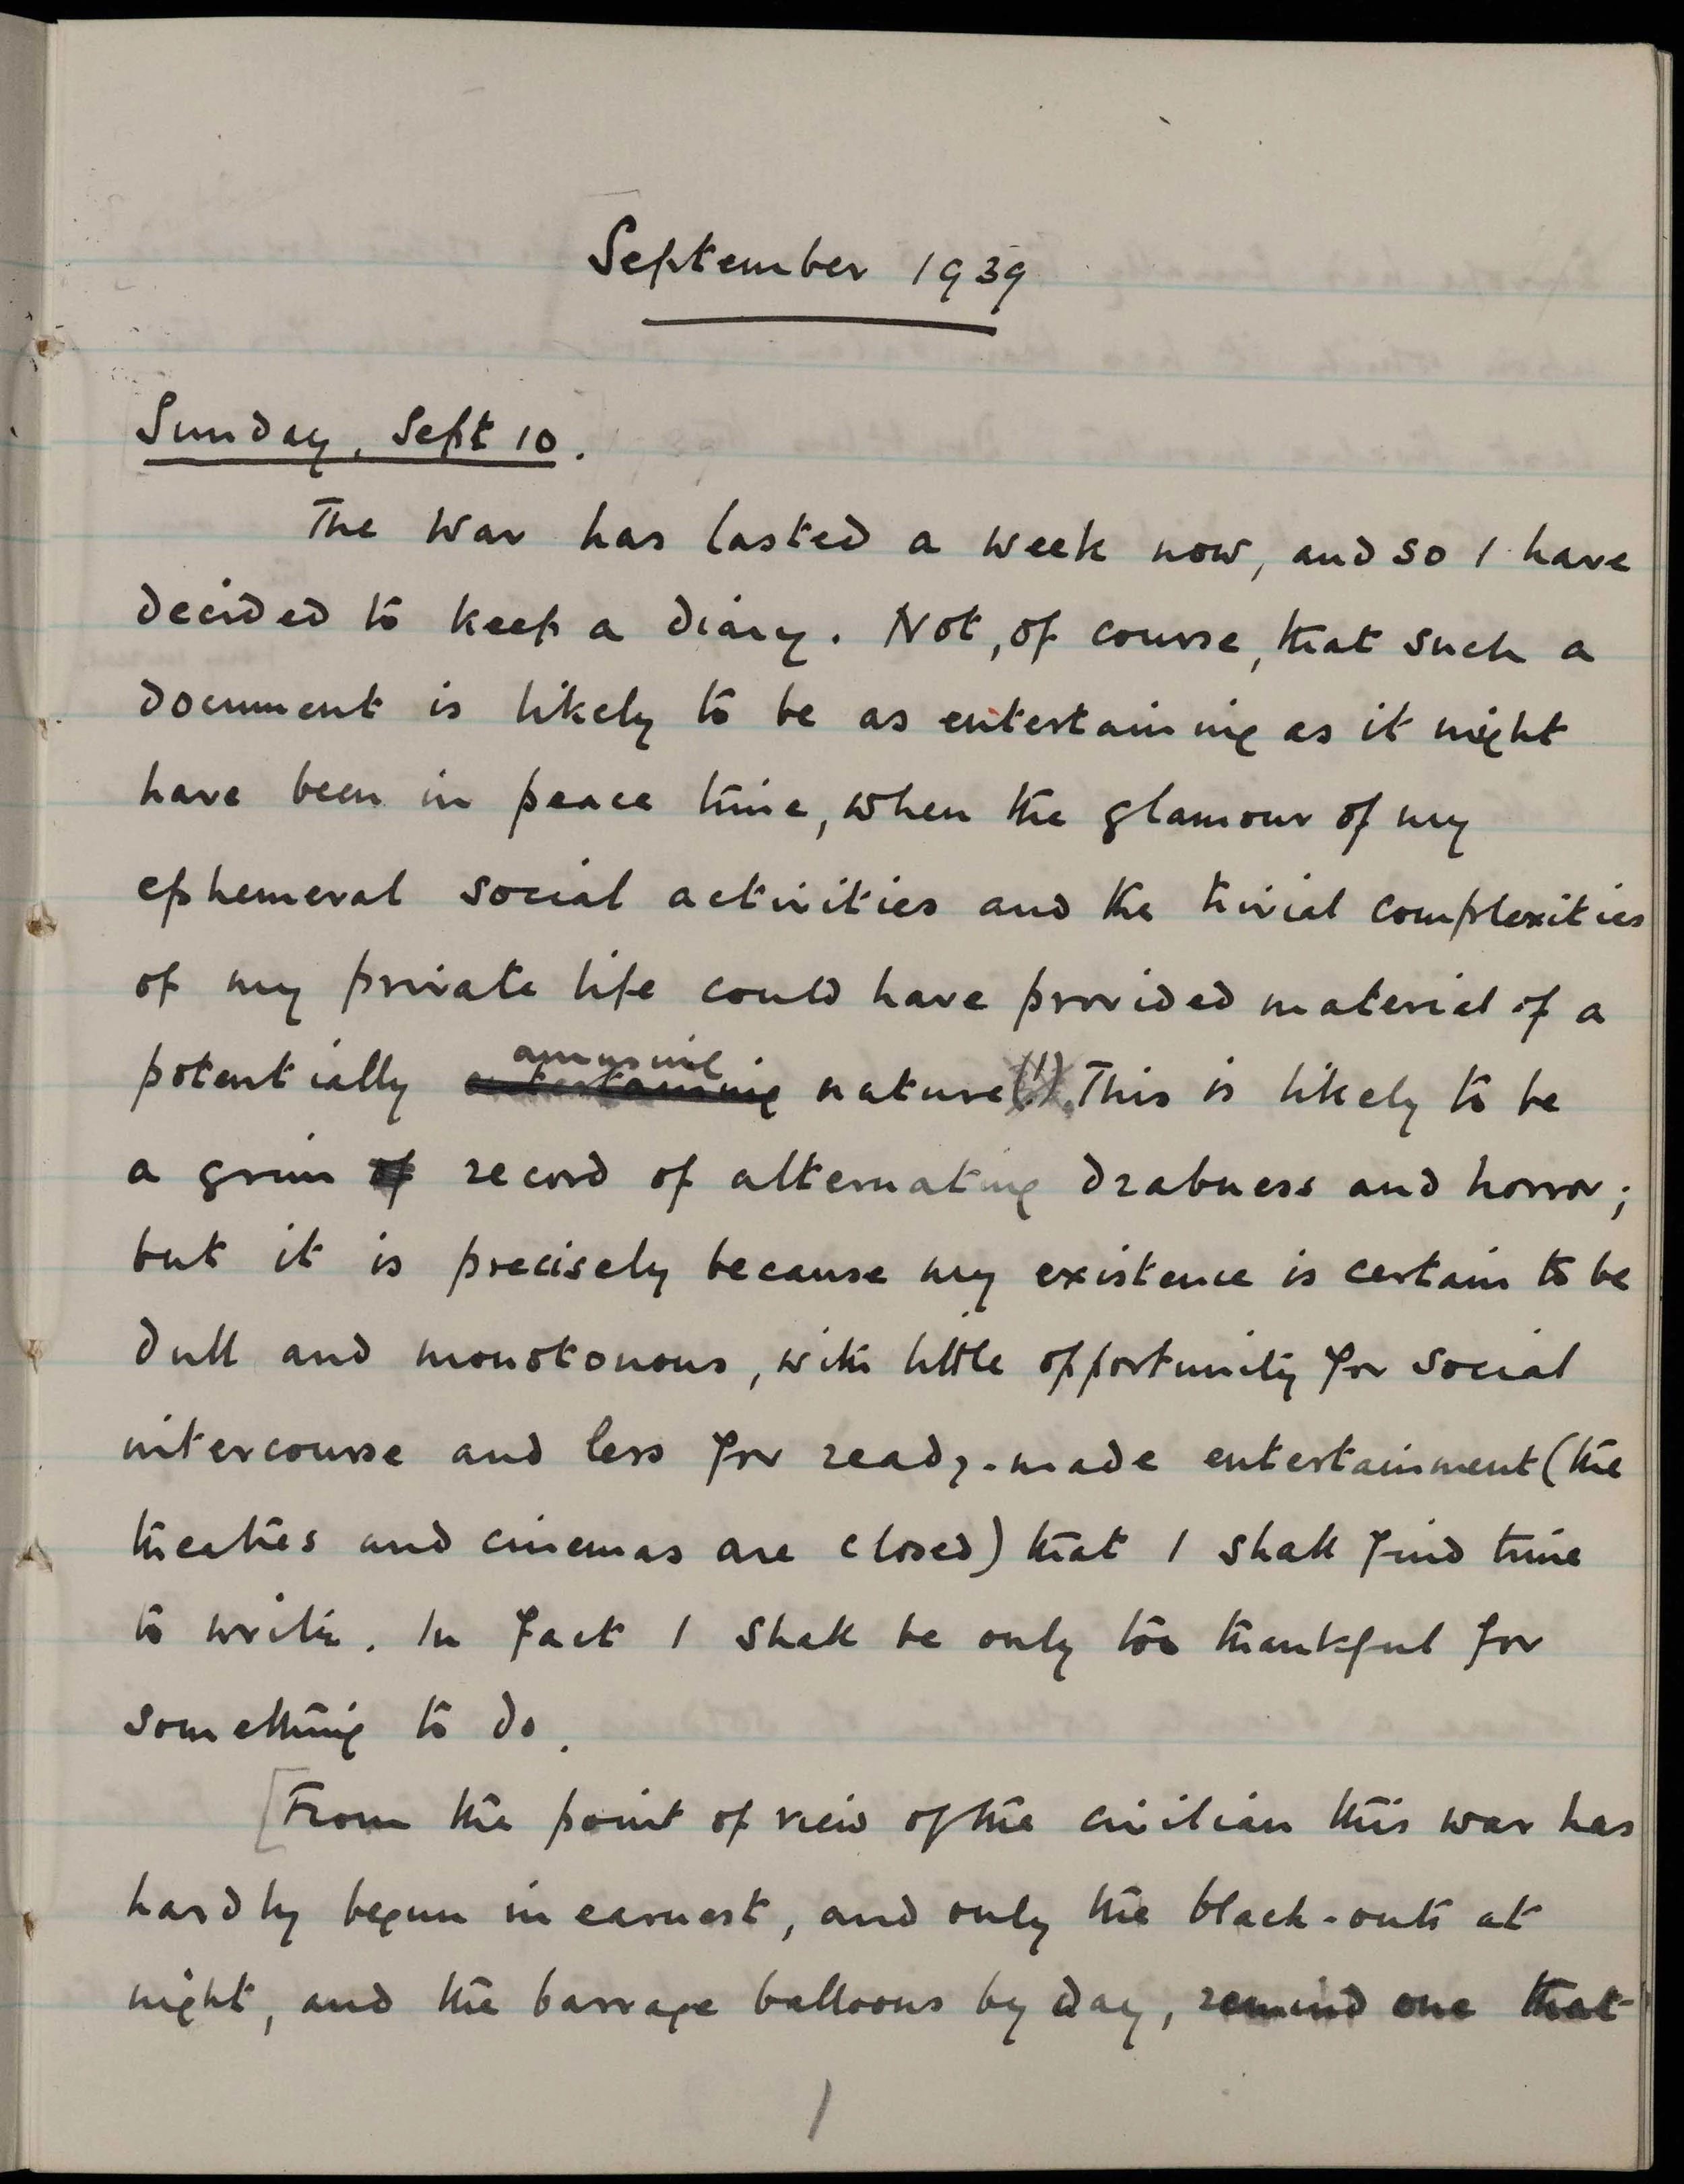 September 1939
Sunday, Sept 10.
The War has lasted a week now, and so I have
decided to keep a diary. Not, of course, that such a
document is likely to be as entertaining as it might
have been in peace time, when the glamour of my
ephemeral social activities and the trivial complexities
of my private life could have provided material of a
amusing
potentially entertaining nature(!). This is likely to be
a grim of record of alternating drabness and horror;
but it is precisely because my existence is certain to be
dull and monotonous, with little opportunity for social
intercourse and less for ready-made entertainment (the
theatres and cinemas are closed) that I shall find time
to write. In fact I shall be only too thankful for
something to do.
[From the point of view of the civilian this war has
hardly begun in earnest, and only the black-outs at
night, and the barrage balloons by day, remind one that
1